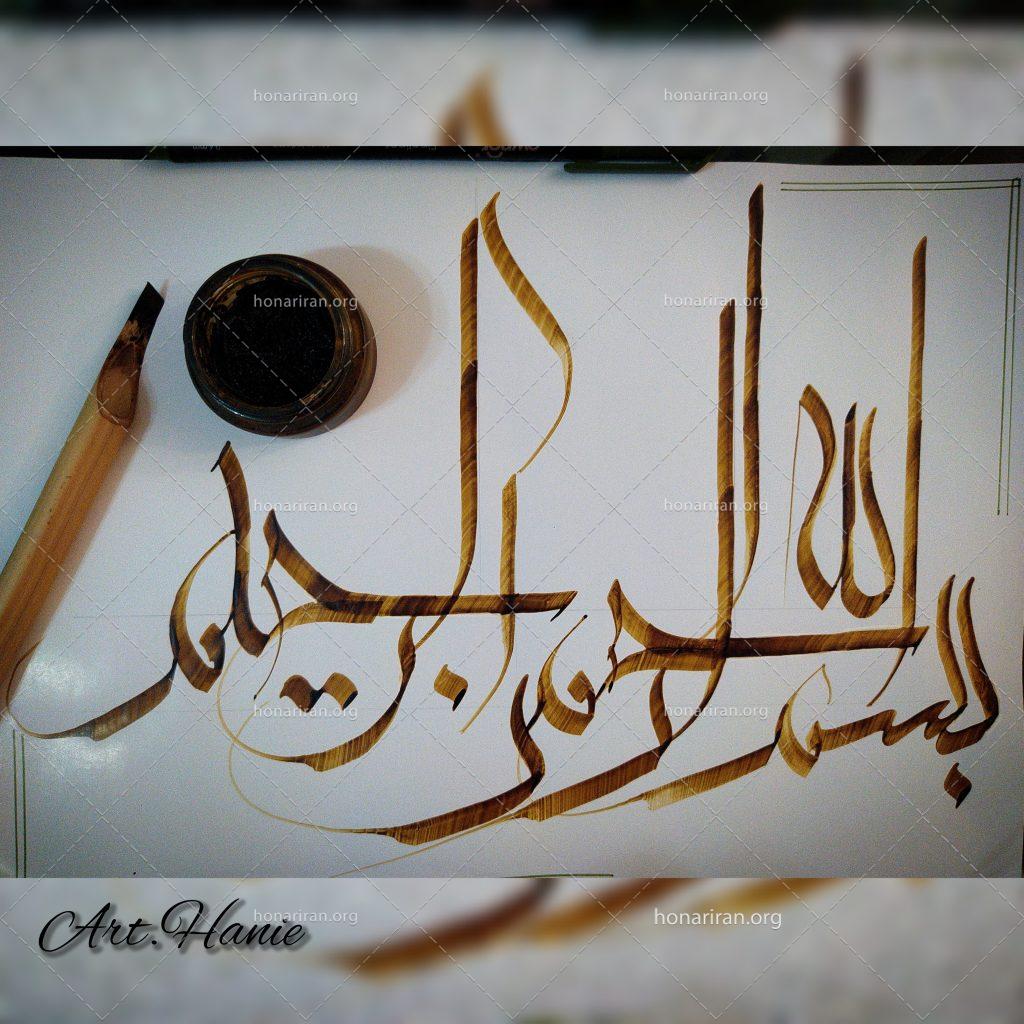 بسم الله الرحمن الرحیم
Art.Hanie
honariran.org
honariran.org
honariran.org
honariran.org
honariran.org
honariran.org
honariran.org
honariran.org
honariran.org
honariran.org